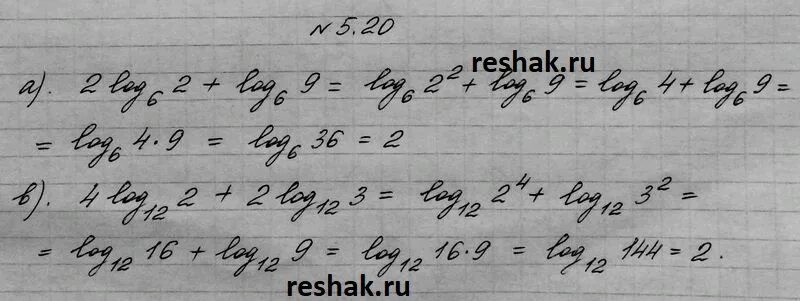 № 5.20
reshak.ru
а). 2 log₆ 2 + log₆ 9 = log₆ 2² + log₆ 9 = log₆ 4 + log₆ 9 =
= log₆ 4·9 = log₆ 36 = 2
в). 4 log₁₂ 2 + 2 log₁₂ 3 = log₁₂ 2⁴ + log₁₂ 3² =
= log₁₂ 16 + log₁₂ 9 = log₁₂ 16·9 = log₁₂ 144 = 2.
reshak.ru